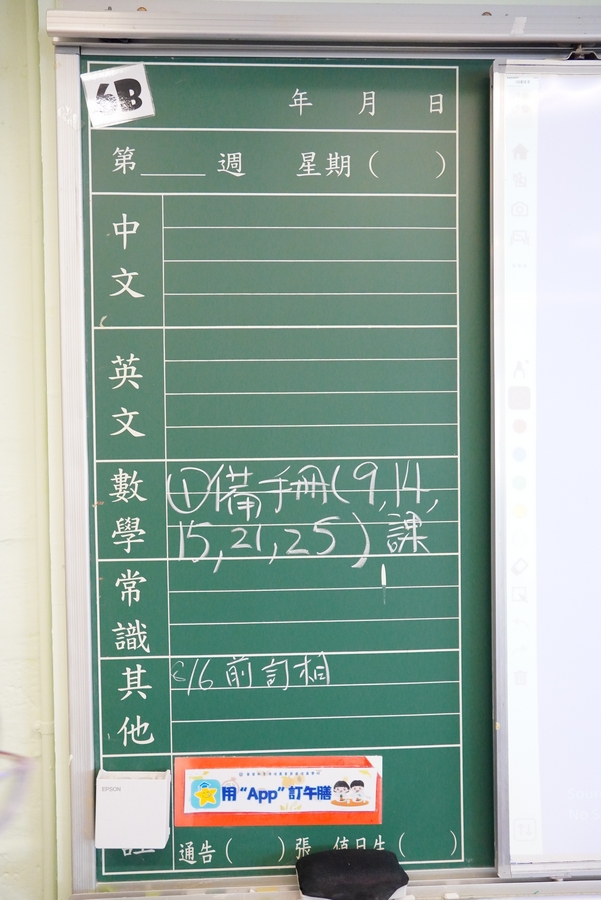 6B
年 月 日
第 週 星期( )
中文
英文
數學
①備手冊(9,14,
15,21,25)課
常識
其他
6/6前訂相
EPSON
用“App”訂午膳
通告( )張 值日生( )